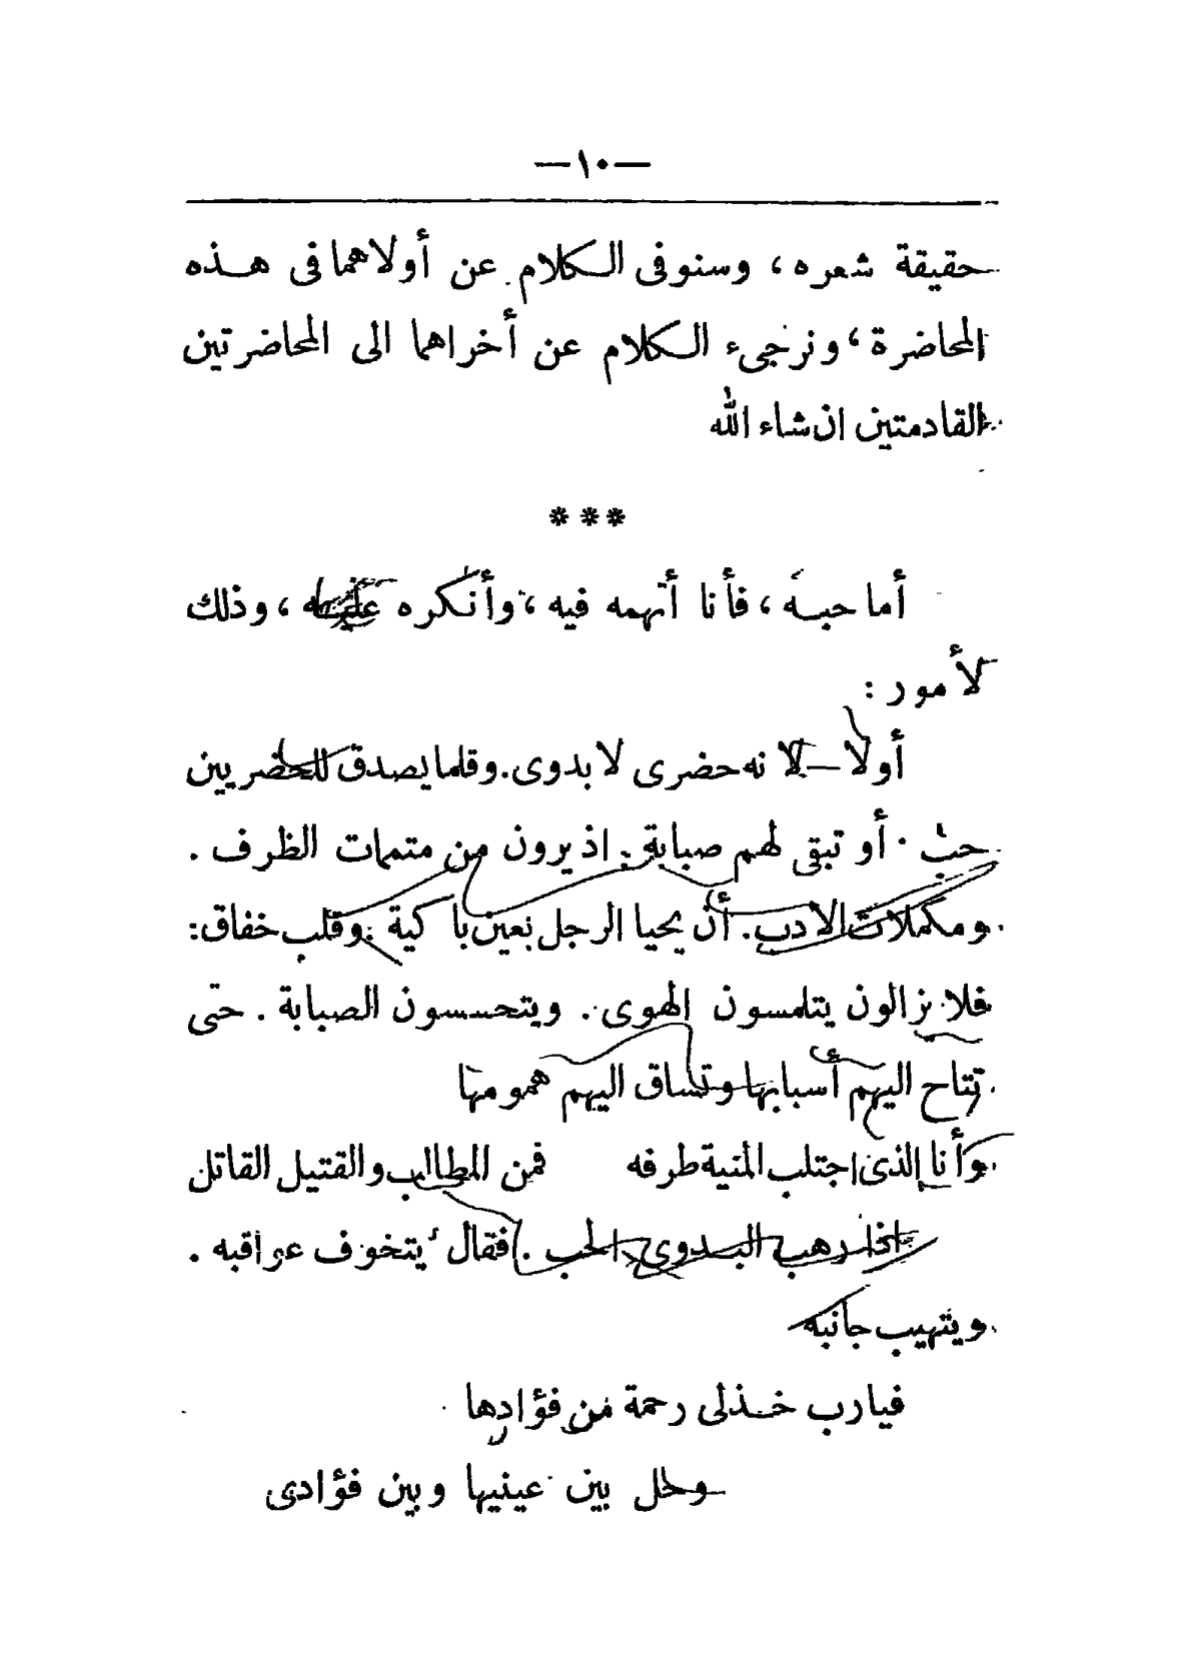 —١٠—
حقيقة شعره ، وسنوفى الكلام عن أولاهما فى هذه
المحاضرة ، ونرجىء الكلام عن أخراهما الى المحاضرتين
القادمتين ان شاء الله
***
أما حبه ، فأنا أتهمه فيه ، وأنكره عليه ، وذلك
لأمور :
أولا — لانه حضرى لا بدوى . وقلما يصدق للحضريين
حب . أو تبقى لهم صبابة . اذ يرون من متمات الظرف .
ومكملات الادب . أن يحيا الرجل بعين باكية . وقلب خفاق :
فلا يزالون يتلمسون الهوى . ويتحسسون الصبابة . حتى
تتاح اليهم أسبابها وتساق اليهم همومها
وأنا الذى اجتلب المنية طرفه فمن المطالب والقتيل القاتل
اذا رهب البدوى الحب . فقال يتخوف عواقبه .
ويتهيب جانبه
فيارب خذ لى رحمة من فؤادها
وحل بين عينيها وبين فؤادى